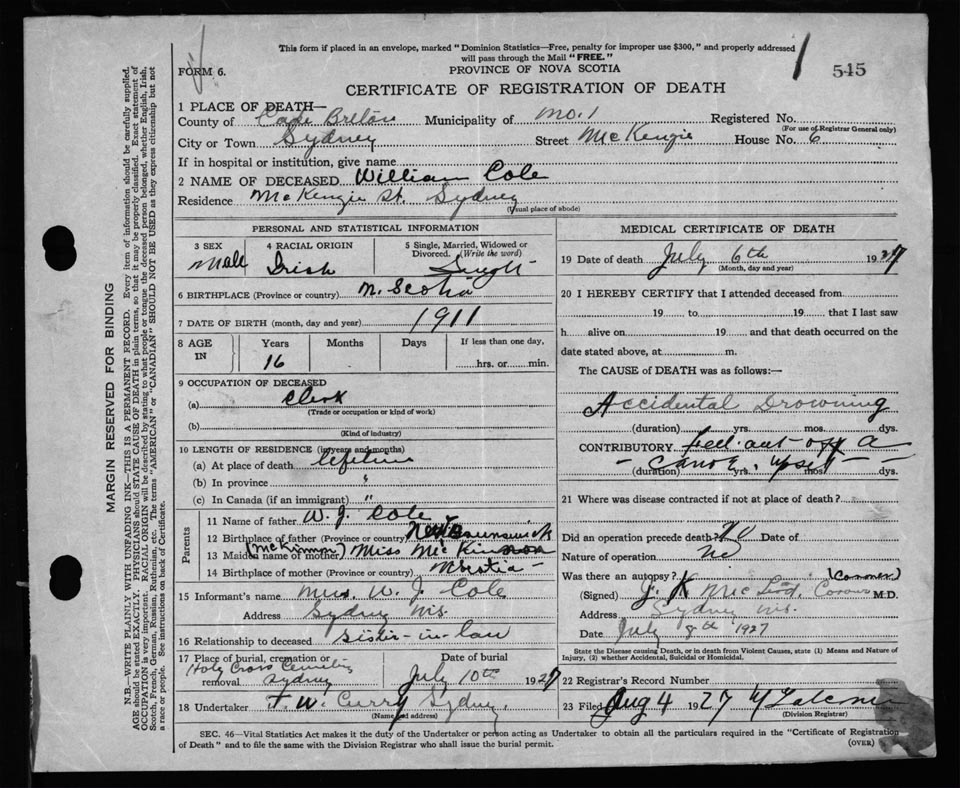 This form if placed in an envelope, marked "Dominion Statistics—Free, penalty for improper use $300," and properly addressed
will pass through the Mail "FREE."
1 545
FORM 6. PROVINCE OF NOVA SCOTIA
CERTIFICATE OF REGISTRATION OF DEATH
1 PLACE OF DEATH—
County of Cape Breton Municipality of No. 1 Registered No.
(For use of Registrar General only)
City or Town Sydney Street McKenzie House No. 6
If in hospital or institution, give name
2 NAME OF DECEASED William Cole
Residence McKenzie St. Sydney
(Usual place of abode)
PERSONAL AND STATISTICAL INFORMATION
3 SEX 4 RACIAL ORIGIN 5 Single, Married, Widowed or Divorced. (Write the word)
Male Irish Single
6 BIRTHPLACE (Province or country) N. Scotia
7 DATE OF BIRTH (month, day and year) 1911
8 AGE IN Years Months Days If less than one day,
16 hrs. or min.
9 OCCUPATION OF DECEASED
(a) Clerk
(Trade or occupation or kind of work)
(b)
(Kind of industry)
10 LENGTH OF RESIDENCE (in years and months)
(a) At place of death lifetime
(b) In province "
(c) In Canada (if an immigrant) "
Parents
11 Name of father W. J. Cole
12 Birthplace of father (Province or country) New Brunswick
13 Maiden name of mother (McKinnon) Miss McKinnon
14 Birthplace of mother (Province or country) N Scotia
15 Informant's name Mrs. W. J. Cole
Address Sydney N.S.
16 Relationship to deceased Sister-in-law
17 Place of burial, cremation or removal Holy Cross Cemetery Sydney
Date of burial July 10th 1927
18 Undertaker F. W. Curry Sydney
(Name and address)
MEDICAL CERTIFICATE OF DEATH
19 Date of death July 6th 1927
(Month, day and year)
20 I HEREBY CERTIFY that I attended deceased from
19 to 19 that I last saw
h alive on 19 and that death occurred on the
date stated above, at m.
The CAUSE of DEATH was as follows:—
Accidental Drowning
(duration) yrs. mos. dys.
CONTRIBUTORY fell out off a
– Canoe, upset –
(duration) yrs. mos. dys.
21 Where was disease contracted if not at place of death?
Did an operation precede death? No Date of
Nature of operation
Was there an autopsy? No
(Coroner)
(Signed) Coroner M.D.
Address Sydney N.S.
Date July 8th 1927
State the Disease causing Death, or in death from Violent Causes, state (1) Means and Nature of
Injury, (2) whether Accidental, Suicidal or Homicidal.
22 Registrar's Record Number
23 Filed Aug 4 1927
(Division Registrar)
SEC. 46—Vital Statistics Act makes it the duty of the Undertaker or person acting as Undertaker to obtain all the particulars required in the "Certificate of Registration
of Death" and to file the same with the Division Registrar who shall issue the burial permit. (OVER)
MARGIN RESERVED FOR BINDING
N.B.—WRITE PLAINLY WITH UNFADING INK—THIS IS A PERMANENT RECORD. Every item of information should be carefully supplied.
AGE should be stated EXACTLY. PHYSICIANS should STATE CAUSE OF DEATH in plain terms, so that it may be properly classified. Exact statement of
OCCUPATION is very important. RACIAL ORIGIN will be described by stating to what people or tongue the deceased person belonged, whether English, Irish,
Scotch, French, German, Russian, Ruthenian, etc. The terms "AMERICAN" or "CANADIAN" SHOULD NOT BE USED as they express citizenship but not
a race or people. See instructions on back of Certificate.